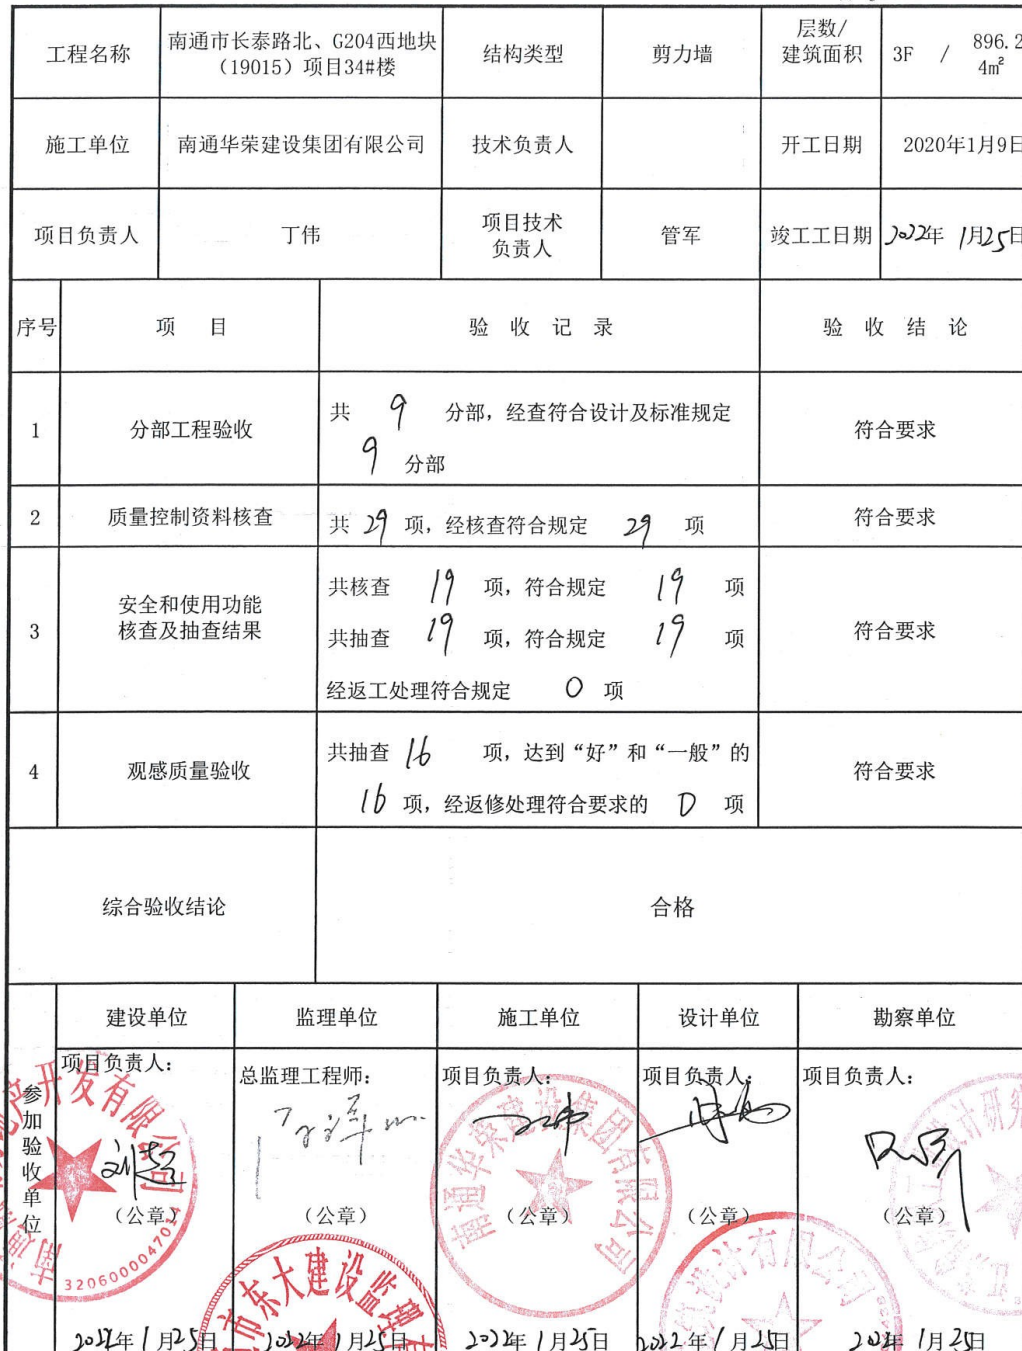 工程名称
南通市长泰路北、G204西地块
（19015）项目34#楼
结构类型
剪力墙
层数/
建筑面积
3F / 896.2
4㎡
施工单位
南通华荣建设集团有限公司
技术负责人
开工日期
2020年1月9日
项目负责人
丁伟
项目技术
负责人
管军
竣工工日期
2022年 1月25日
序号
项 目
验 收 记 录
验 收 结 论
1
分部工程验收
共 9 分部，经查符合设计及标准规定
9 分部
符合要求
2
质量控制资料核查
共 29 项，经核查符合规定 29 项
符合要求
3
安全和使用功能
核查及抽查结果
共核查 19 项，符合规定 19 项
共抽查 19 项，符合规定 19 项
经返工处理符合规定 0 项
符合要求
4
观感质量验收
共抽查 16 项，达到“好”和“一般”的
16 项，经返修处理符合要求的 0 项
符合要求
综合验收结论
合格
参加验收单位
建设单位
监理单位
施工单位
设计单位
勘察单位
项目负责人：
总监理工程师：
项目负责人：
项目负责人：
项目负责人：
开发有限公司
3206000047014
南通华荣建设集团有限公司
市东大建设监理有
设计有限公司
计研究
（公章）
（公章）
（公章）
（公章）
（公章）
2022年1月25日
2022年1月25日
2022年1月25日
2022年1月25日
2022年1月25日